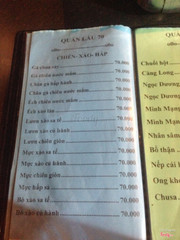 QUÁN LẨU 76
CHIÊN- XÀO- HẤP
Gà chiên 70.000
Gà chiên nước mắm 70.000
Chân gà hấp hành 70.000
Chân gà chiên nước mắm 70.000
Ếch chiên nước mắm 70.000
Ếch chiên giòn 70.000
Lươn xào sa tế 70.000
Lươn xào củ hành 70.000
Lươn chiên giòn 70.000
Mực xào sa tế 70.000
Mực xào củ hành 70.000
Mực chiên giòn 70.000
Mực hấp 70.000
Bò xào sa tế 70.000
Bò xào củ hành 70.000
QUÁ
Chuối hột
Càng Long
Ngọc Dương
Ngọc Dương
Minh Mạng
Minh Mạng
Nhân sâm
Bổ thận
Nếp cái
Ong
Chusa